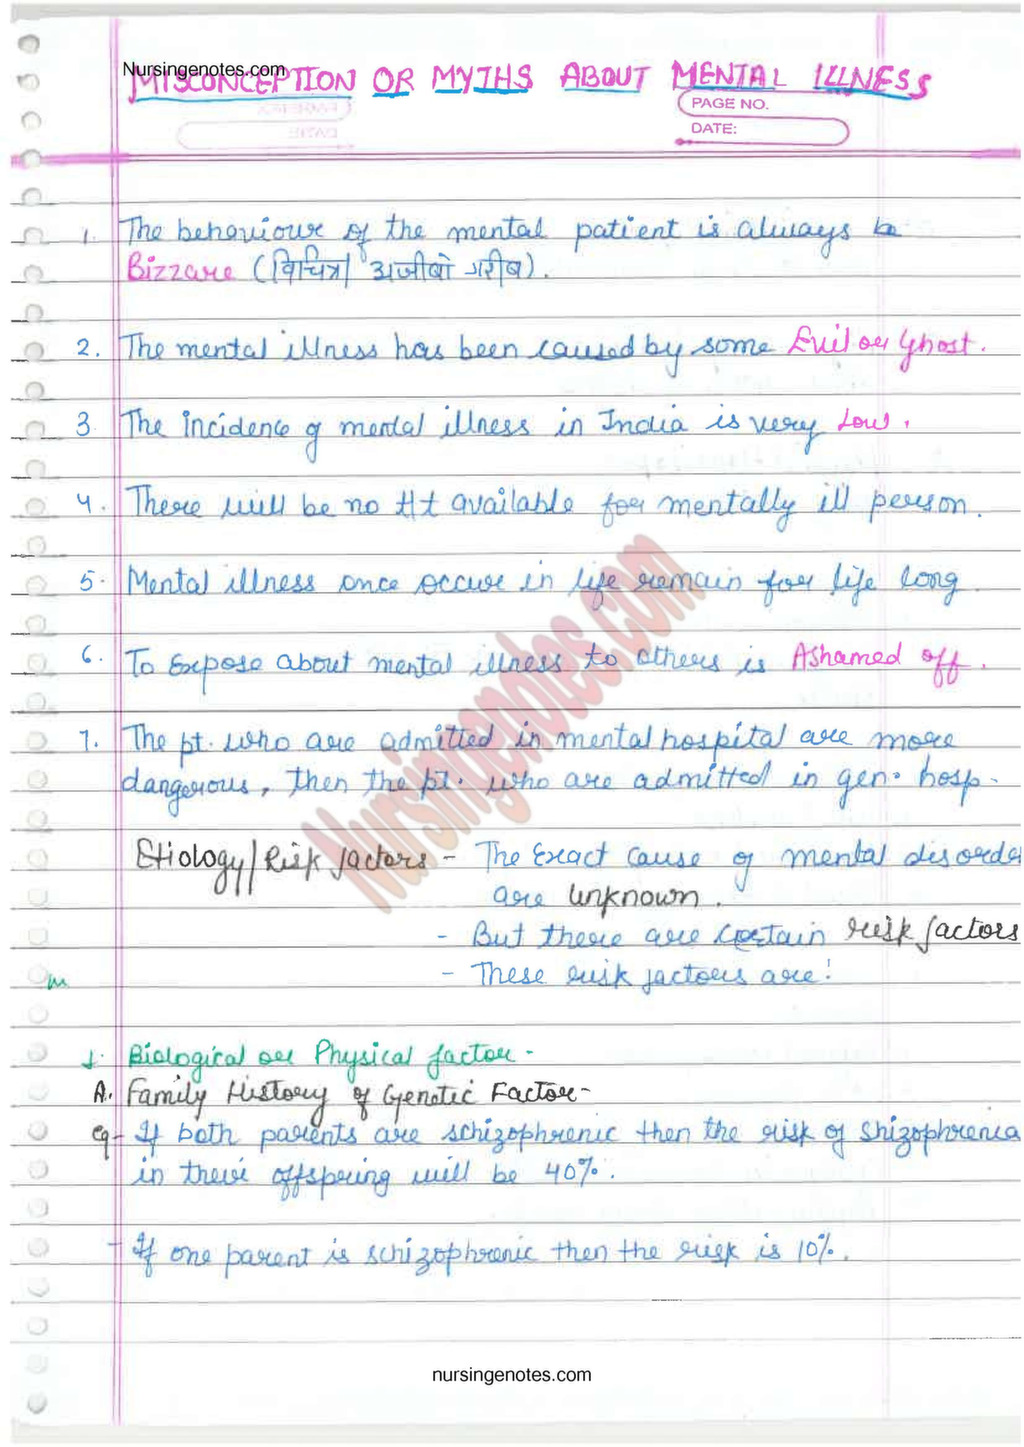 Nursingenotes.com
MISCONCEPTION OR MYTHS ABOUT MENTAL ILLNESS
PAGE NO.
DATE:
1. The behaviour of the mental patient is always be
Bizzare (विचित्र/ अजीबो गरीब).
2. The mental illness has been caused by some Evil or Ghost.
3. The incidence of mental illness in India is very Low.
4. There will be no ttt available for mentally ill person.
5. Mental illness once occur in life remain for life long
6. To Expose about mental illness to others is Ashamed off.
7. The pt. who are admitted in mental hospital are more
dangerous, then the pt. who are admitted in gen. hosp.
Nursingenotes.com
Etiology/Risk factors - The Exact cause of mental disorder
are unknown.
- But there are certain risk factors
- These risk factors are:
1. Biological or Physical factor -
A. Family History of Genetic Factor -
eg - If both parents are schizophrenic then the risk of Shizophrenia
in their offspring will be 40%.
- If one parent is schizophrenic then the risk is 10%.
nursingenotes.com